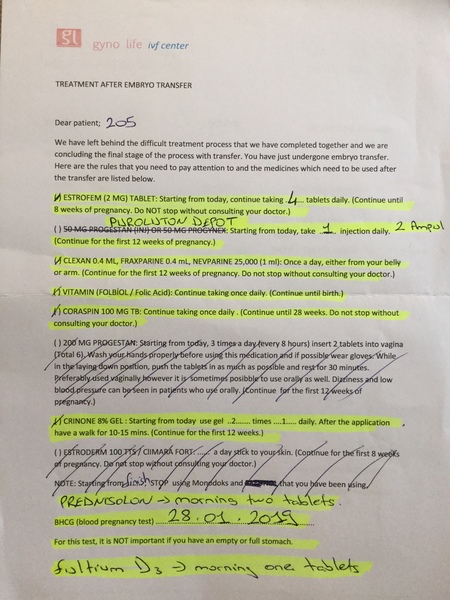 gl gyno life ivf center
TREATMENT AFTER EMBRYO TRANSFER
Dear patient; 205
We have left behind the difficult treatment process that we have completed together and we are
concluding the final stage of the process with transfer. You have just undergone embryo transfer.
Here are the rules that you need to pay attention to and the medicines which need to be used after
the transfer are listed below.
ESTROFEM (2 MG) TABLET: Starting from today, continue taking 4 tablets daily. (Continue until
8 weeks of pregnancy. Do NOT stop without consulting your doctor.)
PUROLUTON DEPOT
( ) 50 MG PROGESTAN (INJ) OR 50 MG PROGYNEX: Starting from today, take ..1.. injection daily. 2 Ampul
(Continue for the first 12 weeks of pregnancy.)
CLEXAN 0.4 ML, FRAXPARINE 0.4 ML, NEVPARINE 25,000 (1 ml): Once a day, either from your belly
or arm. (Continue for the first 12 weeks of pregnancy. Do not stop without consulting your doctor.)
VITAMIN (FOLBİOL / Folic Acid): Continue taking once daily. (Continue until birth.)
CORASPIN 100 MG TB: Continue taking once daily . (Continue until 28 weeks. Do not stop without
consulting your doctor.)
( ) 200 MG PROGESTAN: Starting from today, 3 times a day (every 8 hours) insert 2 tablets into vagina
(Total 6). Wash your hands properly before using this medication and if possible wear gloves. While
in the laying down position, push the tablets in as much as possible and rest for 30 minutes.
Preferably used vaginally however it is sometimes possible to use orally as well. Dizziness and low
blood pressure can be seen in patients who use orally. (Continue for the first 12 weeks of
pregnancy.)
CRINONE 8% GEL : Starting from today use gel ..2...... times ....1..... daily. After the application
have a walk for 10-15 mins. (Continue for the first 12 weeks.)
( ) ESTRODERM 100 TTS / CLIMARA FORT: ...... a day stick to your skin. (Continue for the first 8 weeks
of pregnancy. Do not stop without consulting your doctor.)
NOTE: Starting from finish STOP using Monodoks and that you have been using.
PREDNISOLON → morning two tablets.
BHCG (blood pregnancy test) 28.01.2019
For this test, it is NOT important if you have an empty or full stomach.
fultium D3 → morning one tablets